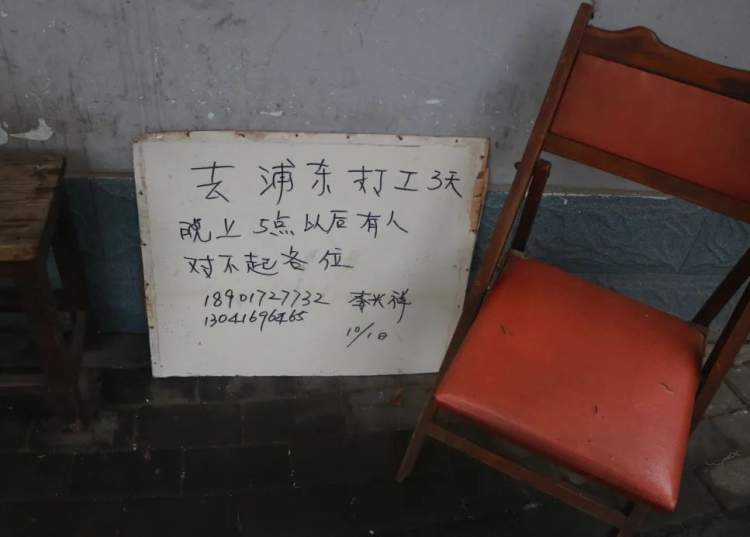 去浦东打工3天
晚上5点以后有人
对不起各位
18901727732 李兴祥
13041696465
10/1日